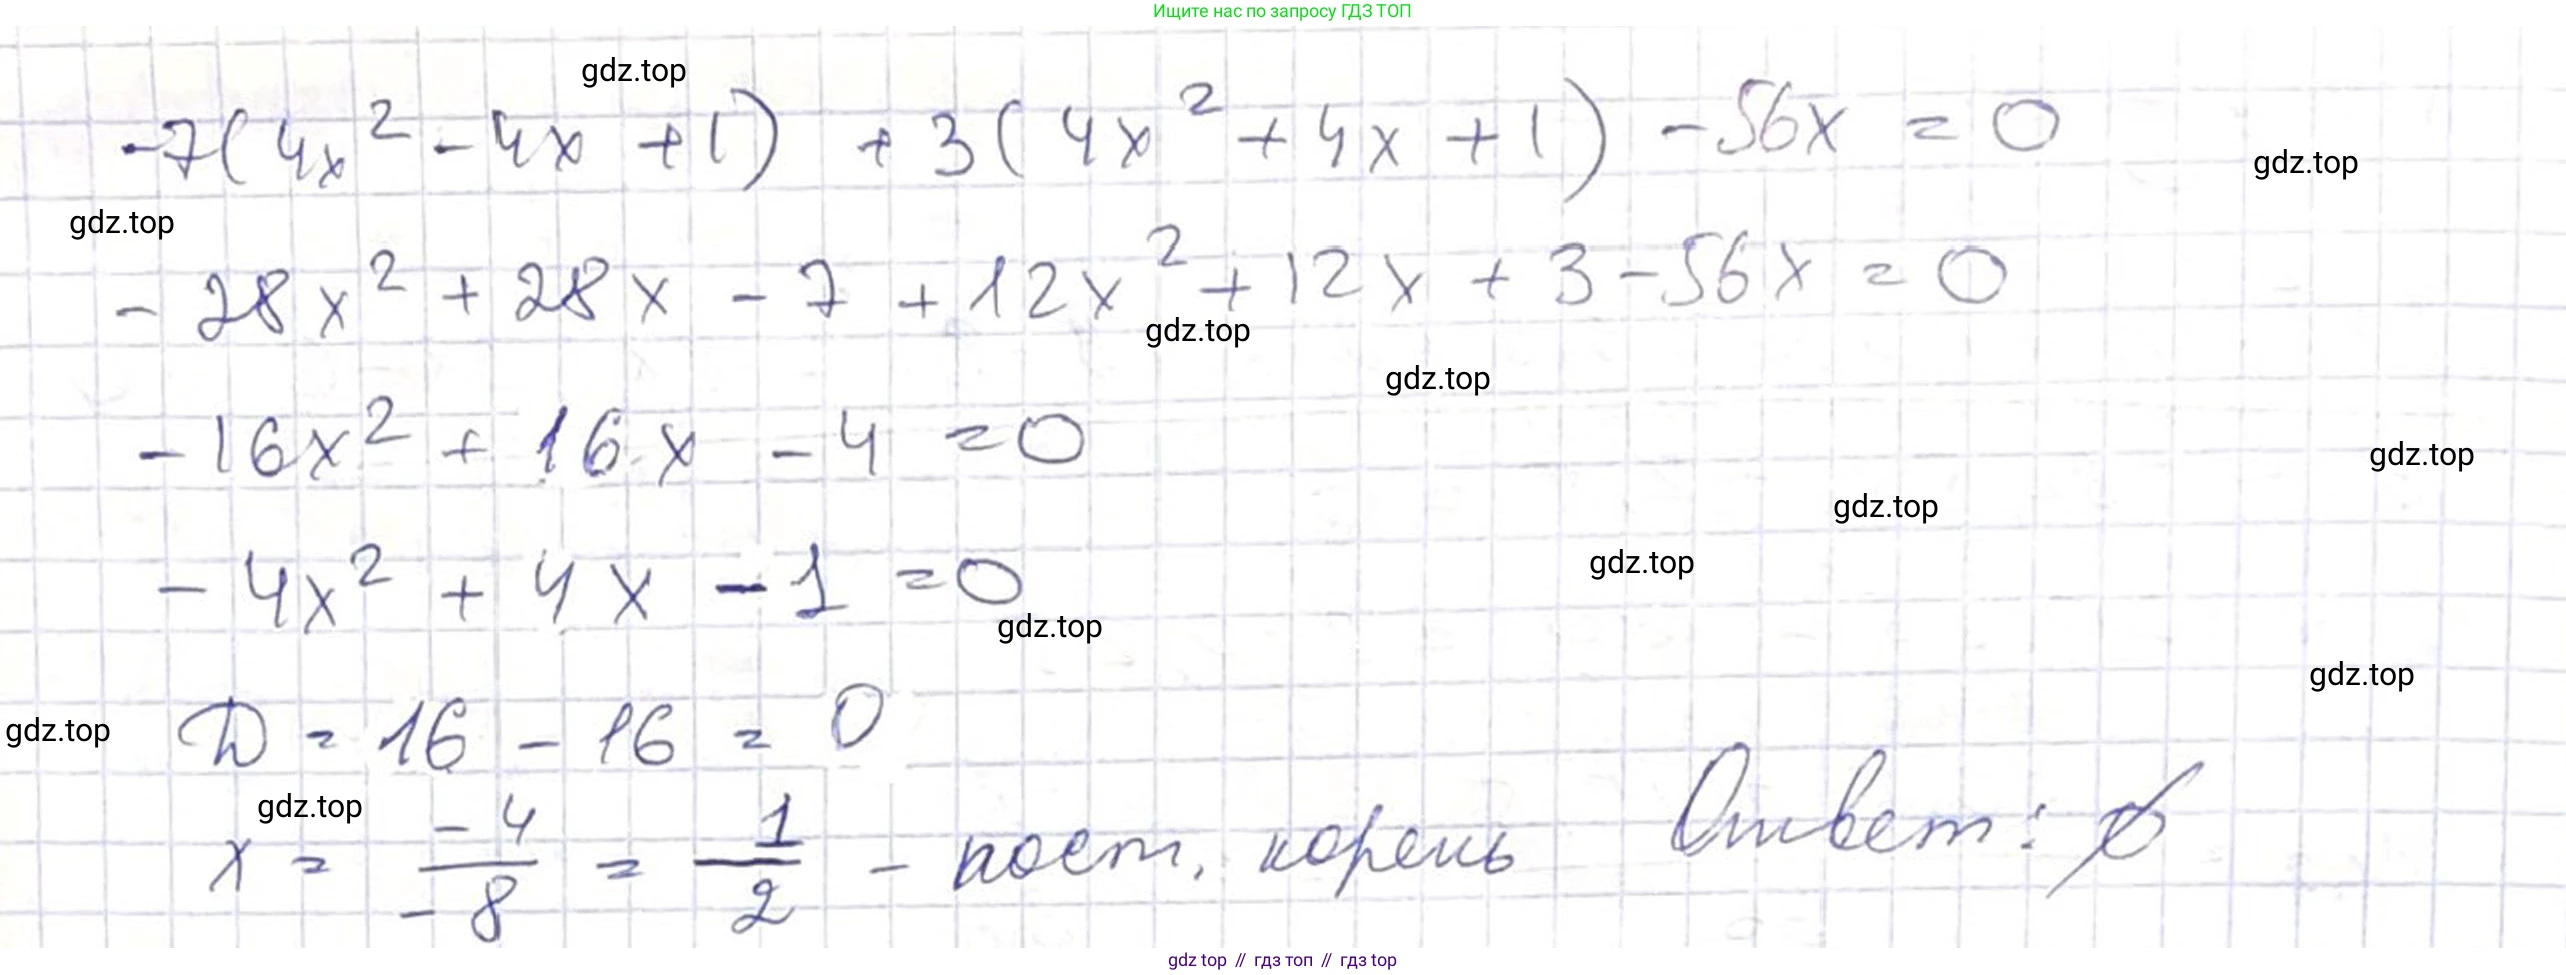 Ищите нас по запросу ГДЗ ТОП
gdz.top
-7(4x² - 4x + 1) + 3(4x² + 4x + 1) - 56x = 0
gdz.top
gdz.top
- 28x² + 28x - 7 + 12x² + 12x + 3 - 56x = 0
gdz.top
gdz.top
- 16x² + 16x - 4 = 0
gdz.top
gdz.top
gdz.top
- 4x² + 4x - 1 = 0
gdz.top
gdz.top
gdz.top
D = 16 - 16 = 0
gdz.top
x = -4/-8 = 1/2 - пост. корень Ответ: ∅
gdz top // гдз топ // гдз top